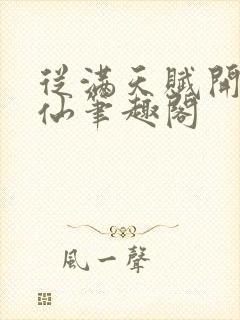 從滿天賦開
仙筆趣閣
風一聲